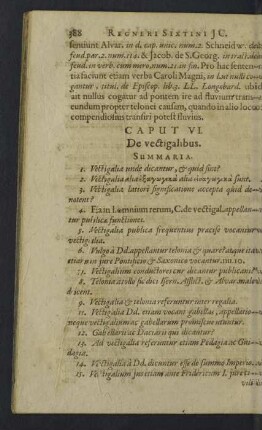 388 REGNERI SIXTINI JC.
sentiunt Alvar. in d. cap. unic. num. 2. Schneid w.
fend par. 2. num. 116. & Jacob. de S. Georg. in
fend. in verb. cum num. 21. in fin. Pro hac senten-
tia faciunt etiam verba Caroli Magni, in
gantur, titul. de Episcop. lib. 3. LL. Longobard. ubi
ait nullus cogatur ad pontem ire ad fluvium trans-
eundum propter telonei causam, quando in alio loco
compendiosius transiri potest fluvius.
CAPUT VI.
De vectigalibus.
SUMMARIA.
1. Vectigalia unde dicantur, & quid sint?
2. Vectigalia alia alia sunt.
3. Vectigalia latiori significatione accepta quid de-
notent?
4. Et in l. omnium rerum, C. de vectigal. appellan-
tur publicæ functiones.
5. Vectigalia publica frequentius præcise vocantur
vectigalia.
6. Vulgo à Dd. appellantur telonia & quare? atque ita
etiam in jure Pontificio, & Saxonico vocantur. nu. 10.
7. Vectigalium conductores cur dicantur publicani?
8. Telonia ab Isernia, Afflict. & Alvar. male
dicent.
9. Vectigalia & telonia referuntur inter regalia.
10. Vectigalia Dd. etiam vocant gabellas, appellatio-
neque vectigalium ac gabellarum promiscue utuntur.
12. Gabellarii ac Daciarii qui dicantur?
13. Ad vectigalia referuntur etiam Pedagia ac Gui-
dagia.
14. Vectigalia à Dd. dicuntur esse de summo Imperio.
15. Vectigalium jus etiam ante Fridericum I. juris